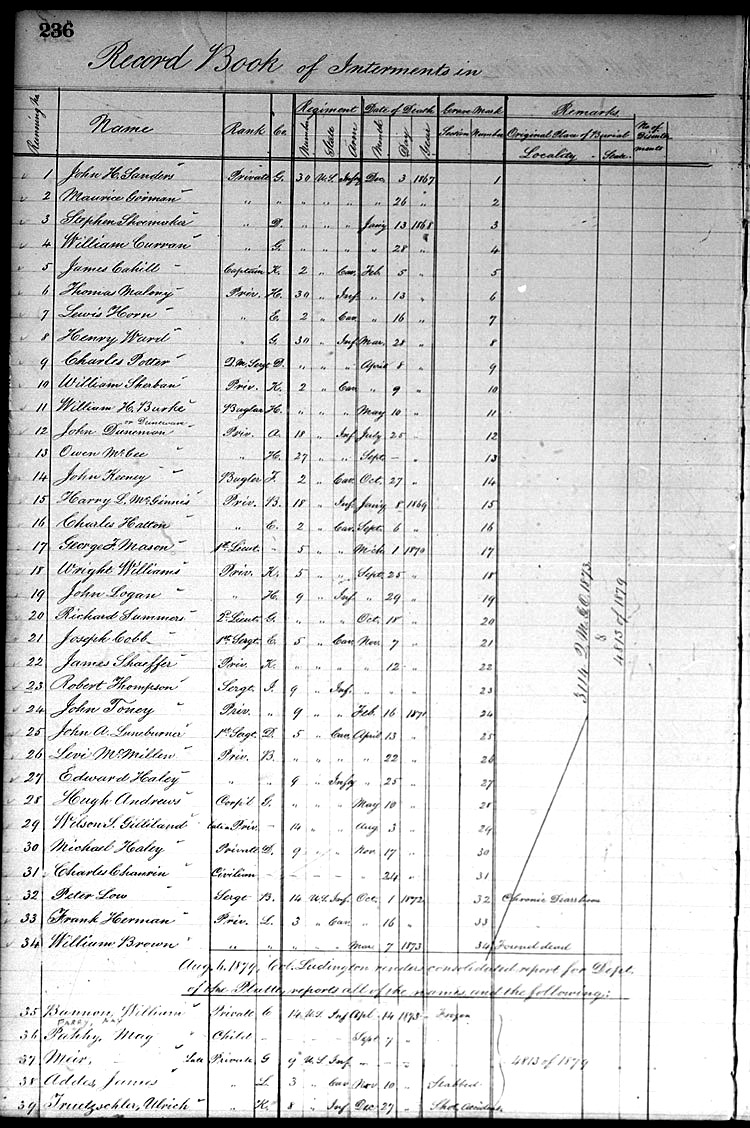 236
Record Book of Interments in
Running No. Name Rank Co. Regiment Date of Death Grave Mark Remarks. No. of
Number State Arm Month Day Year Section Number Original Place of Burial
Locality State
1 John H. Sanders Private G. 30 U.S. Infy Dec. 3 1867 1
2 Maurice Gorman " " " " " " 26 " 2
3 Stephen Shoemaker " D. " " " Jany 13 1868 3
4 William Curran " G. " " " " 28 " 4
5 James Cahill Captain K. 2 " Cav. Feb. 5 " 5
6 Thomas Malony Priv. H. 30 " Inf. " 13 " 6
7 Lewis Horn " E. 2 " Cav. " 16 " 7
8 Henry Ward " G. 30 " Inf. Mar. 28 " 8
9 Charles Potter Q.M. Sergt D. " " " April 8 " 9
10 William Sherban Priv. K. 2 " Cav. " 9 " 10
11 William H. Burke Buglar H. " " " May 10 " 11
or Dunevan
12 John Duneman Priv. A. 18 " Inf. July 25 " 12
13 Owen McGee " H. 27 " " Sept. – " 13
14 John Keeney Bugler F. 2 " Cav. Oct. 27 " 14
15 Harry L. McGinnis Priv. B. 18 " Inf. Jany 8 1869 15
16 Charles Hatton " E. 2 " Cav. Sept. 6 " 16
17 George F. Mason 1st Lieut. " 5 " " Mch. 1 1870 17
18 Wright Williams Priv. K. 5 " " Sept. 25 " 18
19 John Logan " H. 9 " Inf. " 29 " 19
20 Richard Summers 2d Lieut. G. " " " Oct. 18 " 20
21 Joseph Cobb 1st Sergt. E. 5 " Cav. Nov. 7 " 21
22 James Shaeffer Priv. K. " " " " 12 " 22
23 Robert Thompson Sergt. I. 9 " Inf. " " " 23
24 John Toney Priv. " 9 " " Feb. 16 1871 24
25 John A. Luneburner 1st Sergt. D. 5 " Cav. April 13 " 25
26 Levi McMillen Priv. B. " " " " 22 " 26
27 Edward Haley " " 9 " Infy " 25 " 27
28 Hugh Andrews Corpl G. " " " May 10 " 28
29 Wilson S. Gilliland Late Priv. – 14 " " Aug 3 " 29
30 Michael Haley Private D. 9 " " Nov. 17 " 30
31 Charles Chanrin Civilian – – – – " 24 " 31
32 Peter Low Sergt B. 14 U.S. Inf. Oct. 1 1872 32 Chronic Diarrhoea
33 Frank Herman Priv. L. 3 " Cav. " 16 " 33
34 William Brown " " " " " Mar. 7 1873 34 Found dead
3114 Q.M.G.O. 1873
&
4813 of 1879
Aug. 6, 1879, Col. Ludington renders consolidated report for Dept.
of the Platte, reports all of the names and the following:
35 Bannon, William Private C 14 U.S. Inf Apl. 14 1873 Frozen
36 Pahhy, May Child – Sept 7 "
37 Meir, Late Private G 9 U.S. Inf. – – –
4813 of 1879
38 Addes, James " L. 3 " Cav Nov 10 – Stabbed
39 Truetzschler, Ulrich " K. 8 " Inf Dec 27 " Shot, accident